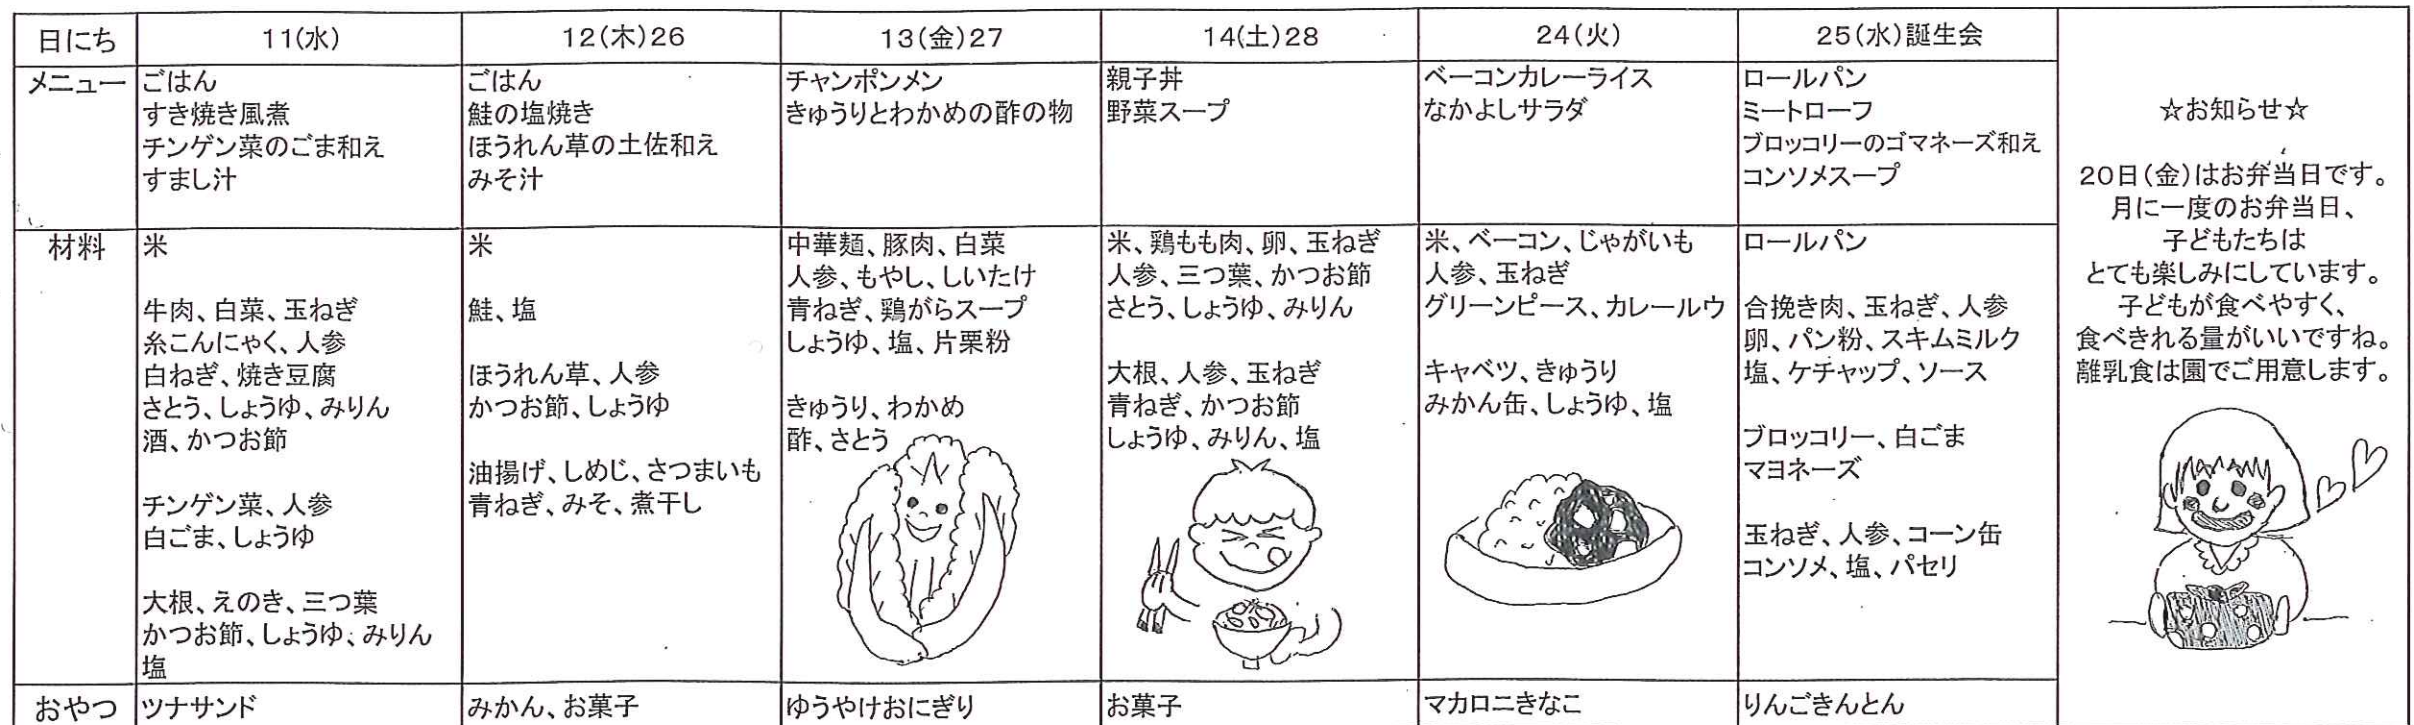 日にち
11(水)
12(木)26
13(金)27
14(土)28
24(火)
25(水)誕生会
メニュー
ごはん
すき焼き風煮
チンゲン菜のごま和え
すまし汁
ごはん
鮭の塩焼き
ほうれん草の土佐和え
みそ汁
チャンポンメン
きゅうりとわかめの酢の物
親子丼
野菜スープ
ベーコンカレーライス
なかよしサラダ
ロールパン
ミートローフ
ブロッコリーのゴマネーズ和え
コンソメスープ
材料
米
牛肉、白菜、玉ねぎ
糸こんにゃく、人参
白ねぎ、焼き豆腐
さとう、しょうゆ、みりん
酒、かつお節
チンゲン菜、人参
白ごま、しょうゆ
大根、えのき、三つ葉
かつお節、しょうゆ、みりん
塩
米
鮭、塩
ほうれん草、人参
かつお節、しょうゆ
油揚げ、しめじ、さつまいも
青ねぎ、みそ、煮干し
中華麺、豚肉、白菜
人参、もやし、しいたけ
青ねぎ、鶏がらスープ
しょうゆ、塩、片栗粉
きゅうり、わかめ
酢、さとう
米、鶏もも肉、卵、玉ねぎ
人参、三つ葉、かつお節
さとう、しょうゆ、みりん
大根、人参、玉ねぎ
青ねぎ、かつお節
しょうゆ、みりん、塩
米、ベーコン、じゃがいも
人参、玉ねぎ
グリーンピース、カレールウ
キャベツ、きゅうり
みかん缶、しょうゆ、塩
ロールパン
合挽き肉、玉ねぎ、人参
卵、パン粉、スキムミルク
塩、ケチャップ、ソース
ブロッコリー、白ごま
マヨネーズ
玉ねぎ、人参、コーン缶
コンソメ、塩、パセリ
おやつ
ツナサンド
みかん、お菓子
ゆうやけおにぎり
お菓子
マカロニきなこ
りんごきんとん
☆お知らせ☆
20日(金)はお弁当日です。
月に一度のお弁当日、
子どもたちは
とても楽しみにしています。
子どもが食べやすく、
食べきれる量がいいですね。
離乳食は園でご用意します。